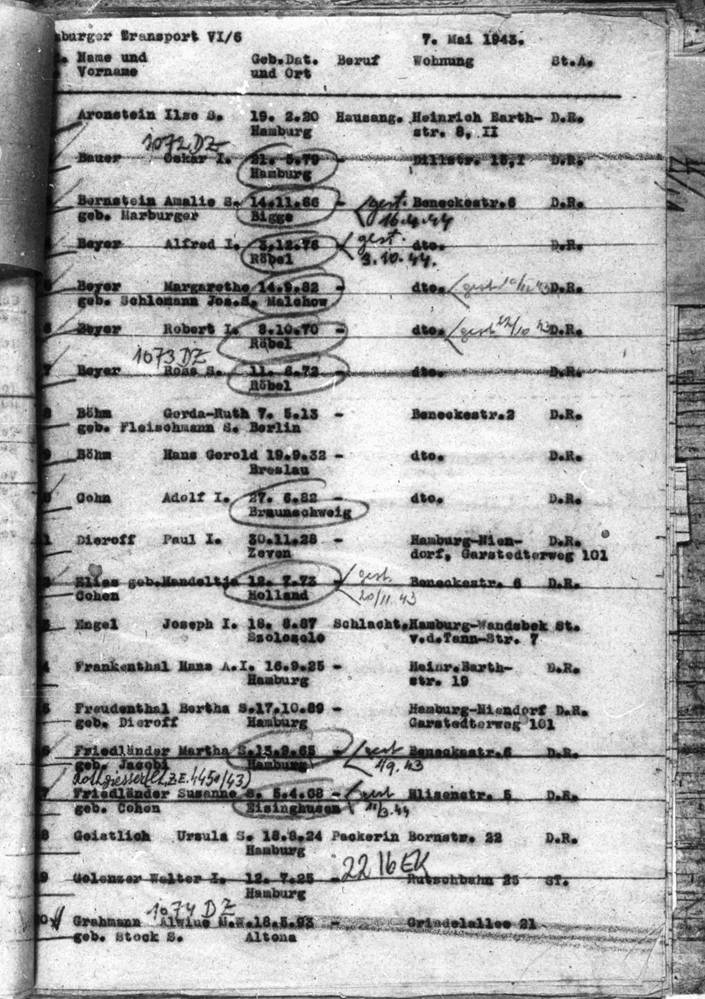 mburger Transport VI/6 7. Mai 1943.
Name und Geb.Dat. Beruf Wohnung St.A.
Vorname und Ort
Aronstein Ilse S. 19. 2.20 Hausang. Heinrich Barth- D.R.
Hamburg str. 8, II
1072 DZ
Bauer Oskar I. 21. 5.79 - Dillstr. 15,I D.R.
Hamburg
Bernstein Amalie S. 14.11.66 - gest. Beneckestr.6 D.R.
geb. Marburger Bigge 16.4.44
Beyer Alfred I. 3.12.76 gest. dto. D.R.
Röbel 3.10.44.
Beyer Margarethe 14.9.82 - dto. gest. D.R.
geb. Schlomann Jos.S. Malchow
6 Beyer Robert I. 8.10.70 - dto. gest. D.R.
Röbel
1073 DZ
7 Beyer Rosa S. 11. 6.72 - dto. D.R.
Röbel
8 Böhm Gerda-Ruth 7. 5.13 - Beneckestr.2 D.R.
geb. Fleischmann S. Berlin
9 Böhm Hans Gerold 19.9.32 - dto. D.R.
Breslau
0 Cohn Adolf I. 27. 6.82 - dto. D.R.
Braunschweig
1 Dieroff Paul I. 30.11.28 - Hamburg-Nien- D.R.
Zeven dorf, Garstedterweg 101
Elias geb.Mandeltje 12. 7.73 - gest. Beneckestr. 6 D.R.
Cohen Holland 20/11.43
3 Engel Joseph I. 18. 6.87 Schlacht. Hamburg-Wandsbek St.
v.d.Tann-Str. 7
4 Frankenthal Hans A.I. 16.9.25 - Heinr.Barth- D.R.
Hamburg str. 19
5 Freudenthal Bertha S.17.10.89 - Hamburg-Niendorf D.R.
geb. Dieroff Hamburg Garstedterweg 101
6 Friedländer Martha S.13.9.65 - gest Beneckestr.6 D.R.
geb. Jacobi Hamburg 1/9.43
7 Friedländer Susanne S. 5.4.68 - gest Klisenstr. 5 D.R.
geb. Cohen
8 Geistlich Ursula S. 18.8.24 Packerin Bornstr. 22 D.R.
Hamburg
22 16 EK
9 Golenzer Walter I. 12. 7.25 - Rutschbahn 25 ST.
Hamburg
1074 DZ
0 Grahmann Alwine M.W.18.5.93 - Grindelallee 21
geb. Stock S. Altona